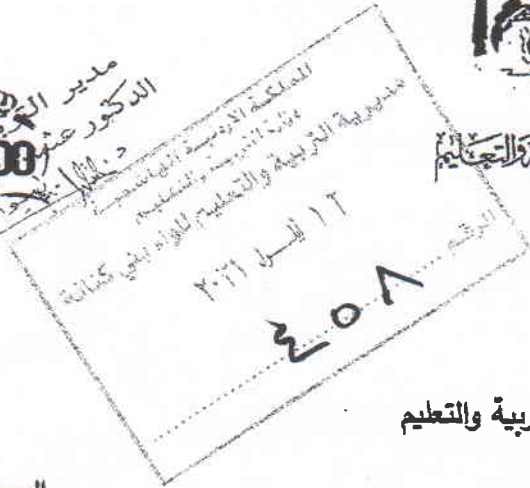 مدير
الدكتور
00
المملكة الأردنية الهاشمية
وزارة التربية والتعليم
مديرية التربية والتعليم للواء بني كنانة
١٢ ايلول ٢٠٢١
الرقم
٤٥٨
والتعليم
ربية والتعليم